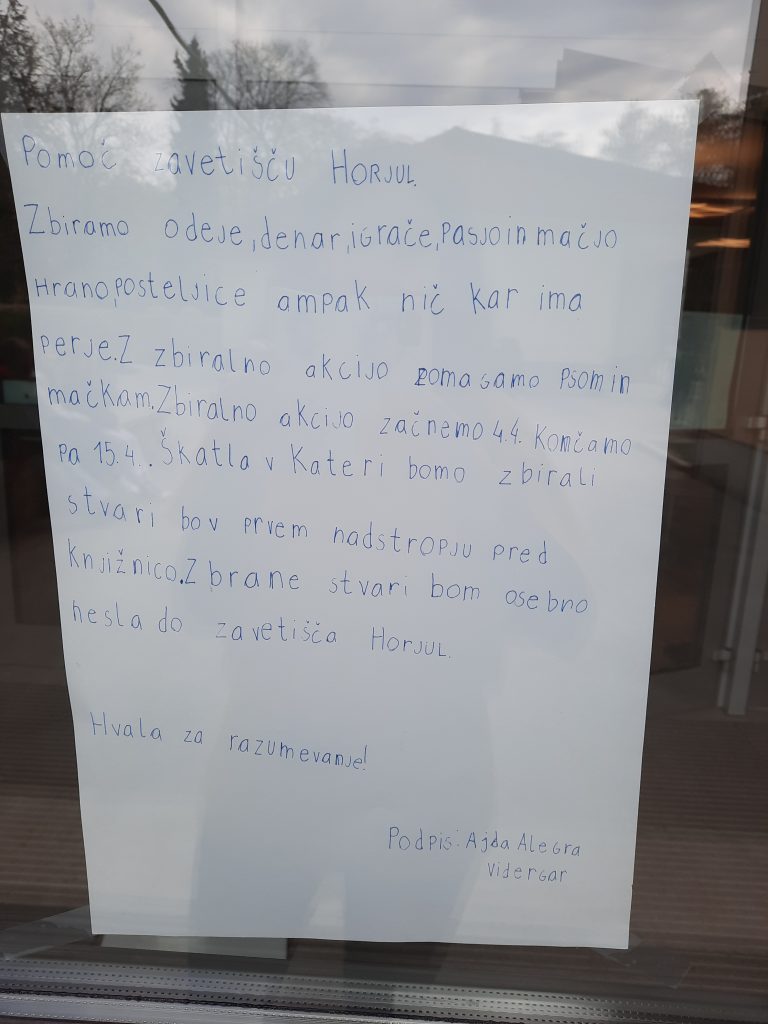 Pomoč zavetišču HORJUL.
Zbiramo odeje, denar, igrače, pasjo in mačjo
Hrano, posteljice ampak nič kar ima
perje. Z zbiralno akcijo pomagamo psom in
mačkam. Zbiralno akcijo začnemo 4.4. Končamo
pa 15.4.. Škatla v Kateri bomo zbirali
stvari bo v prvem nadstropju pred
knjižnico. Zbrane stvari bom osebno
nesla do zavetišča HORJUL.
Hvala za razumevanje!
Podpis: Ajda Alegra
Vidergar